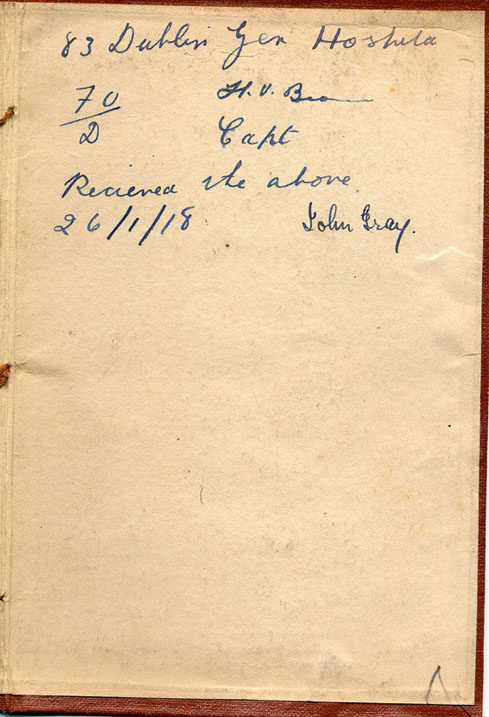 83 Dublin Gen Hospita
70 H. V. Brown
D Capt
Recieved the above.
26/1/18 John Gray.